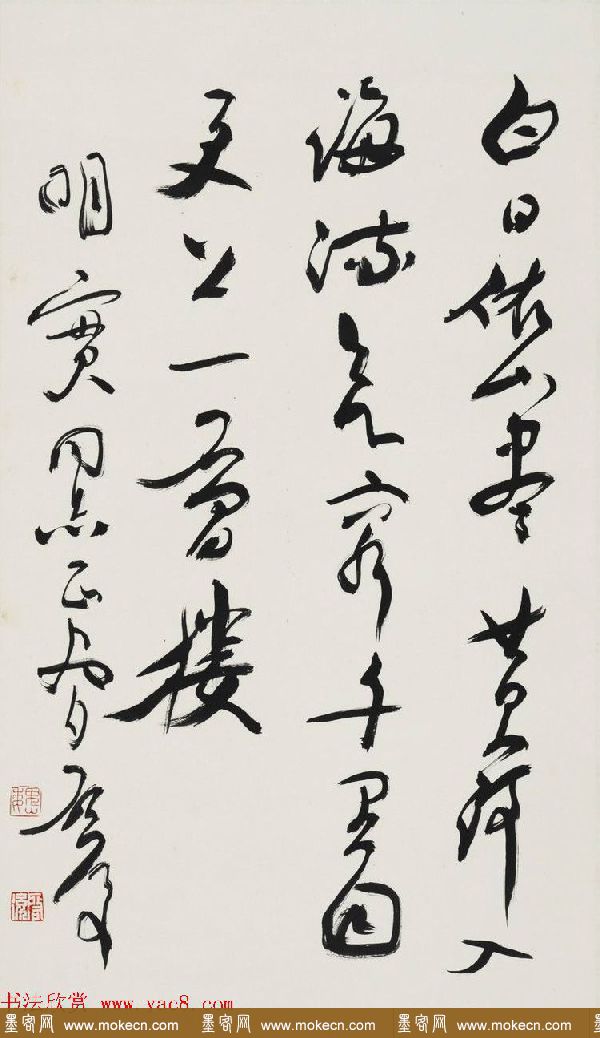 白日依山盡黃河入
海流欲窮千里目
更上一層樓
明實同志正
书法欣赏 www.yac8.com
墨客网 www.mokecn.com 墨客网 www.mokecn.com 墨客网 www.mokecn.com